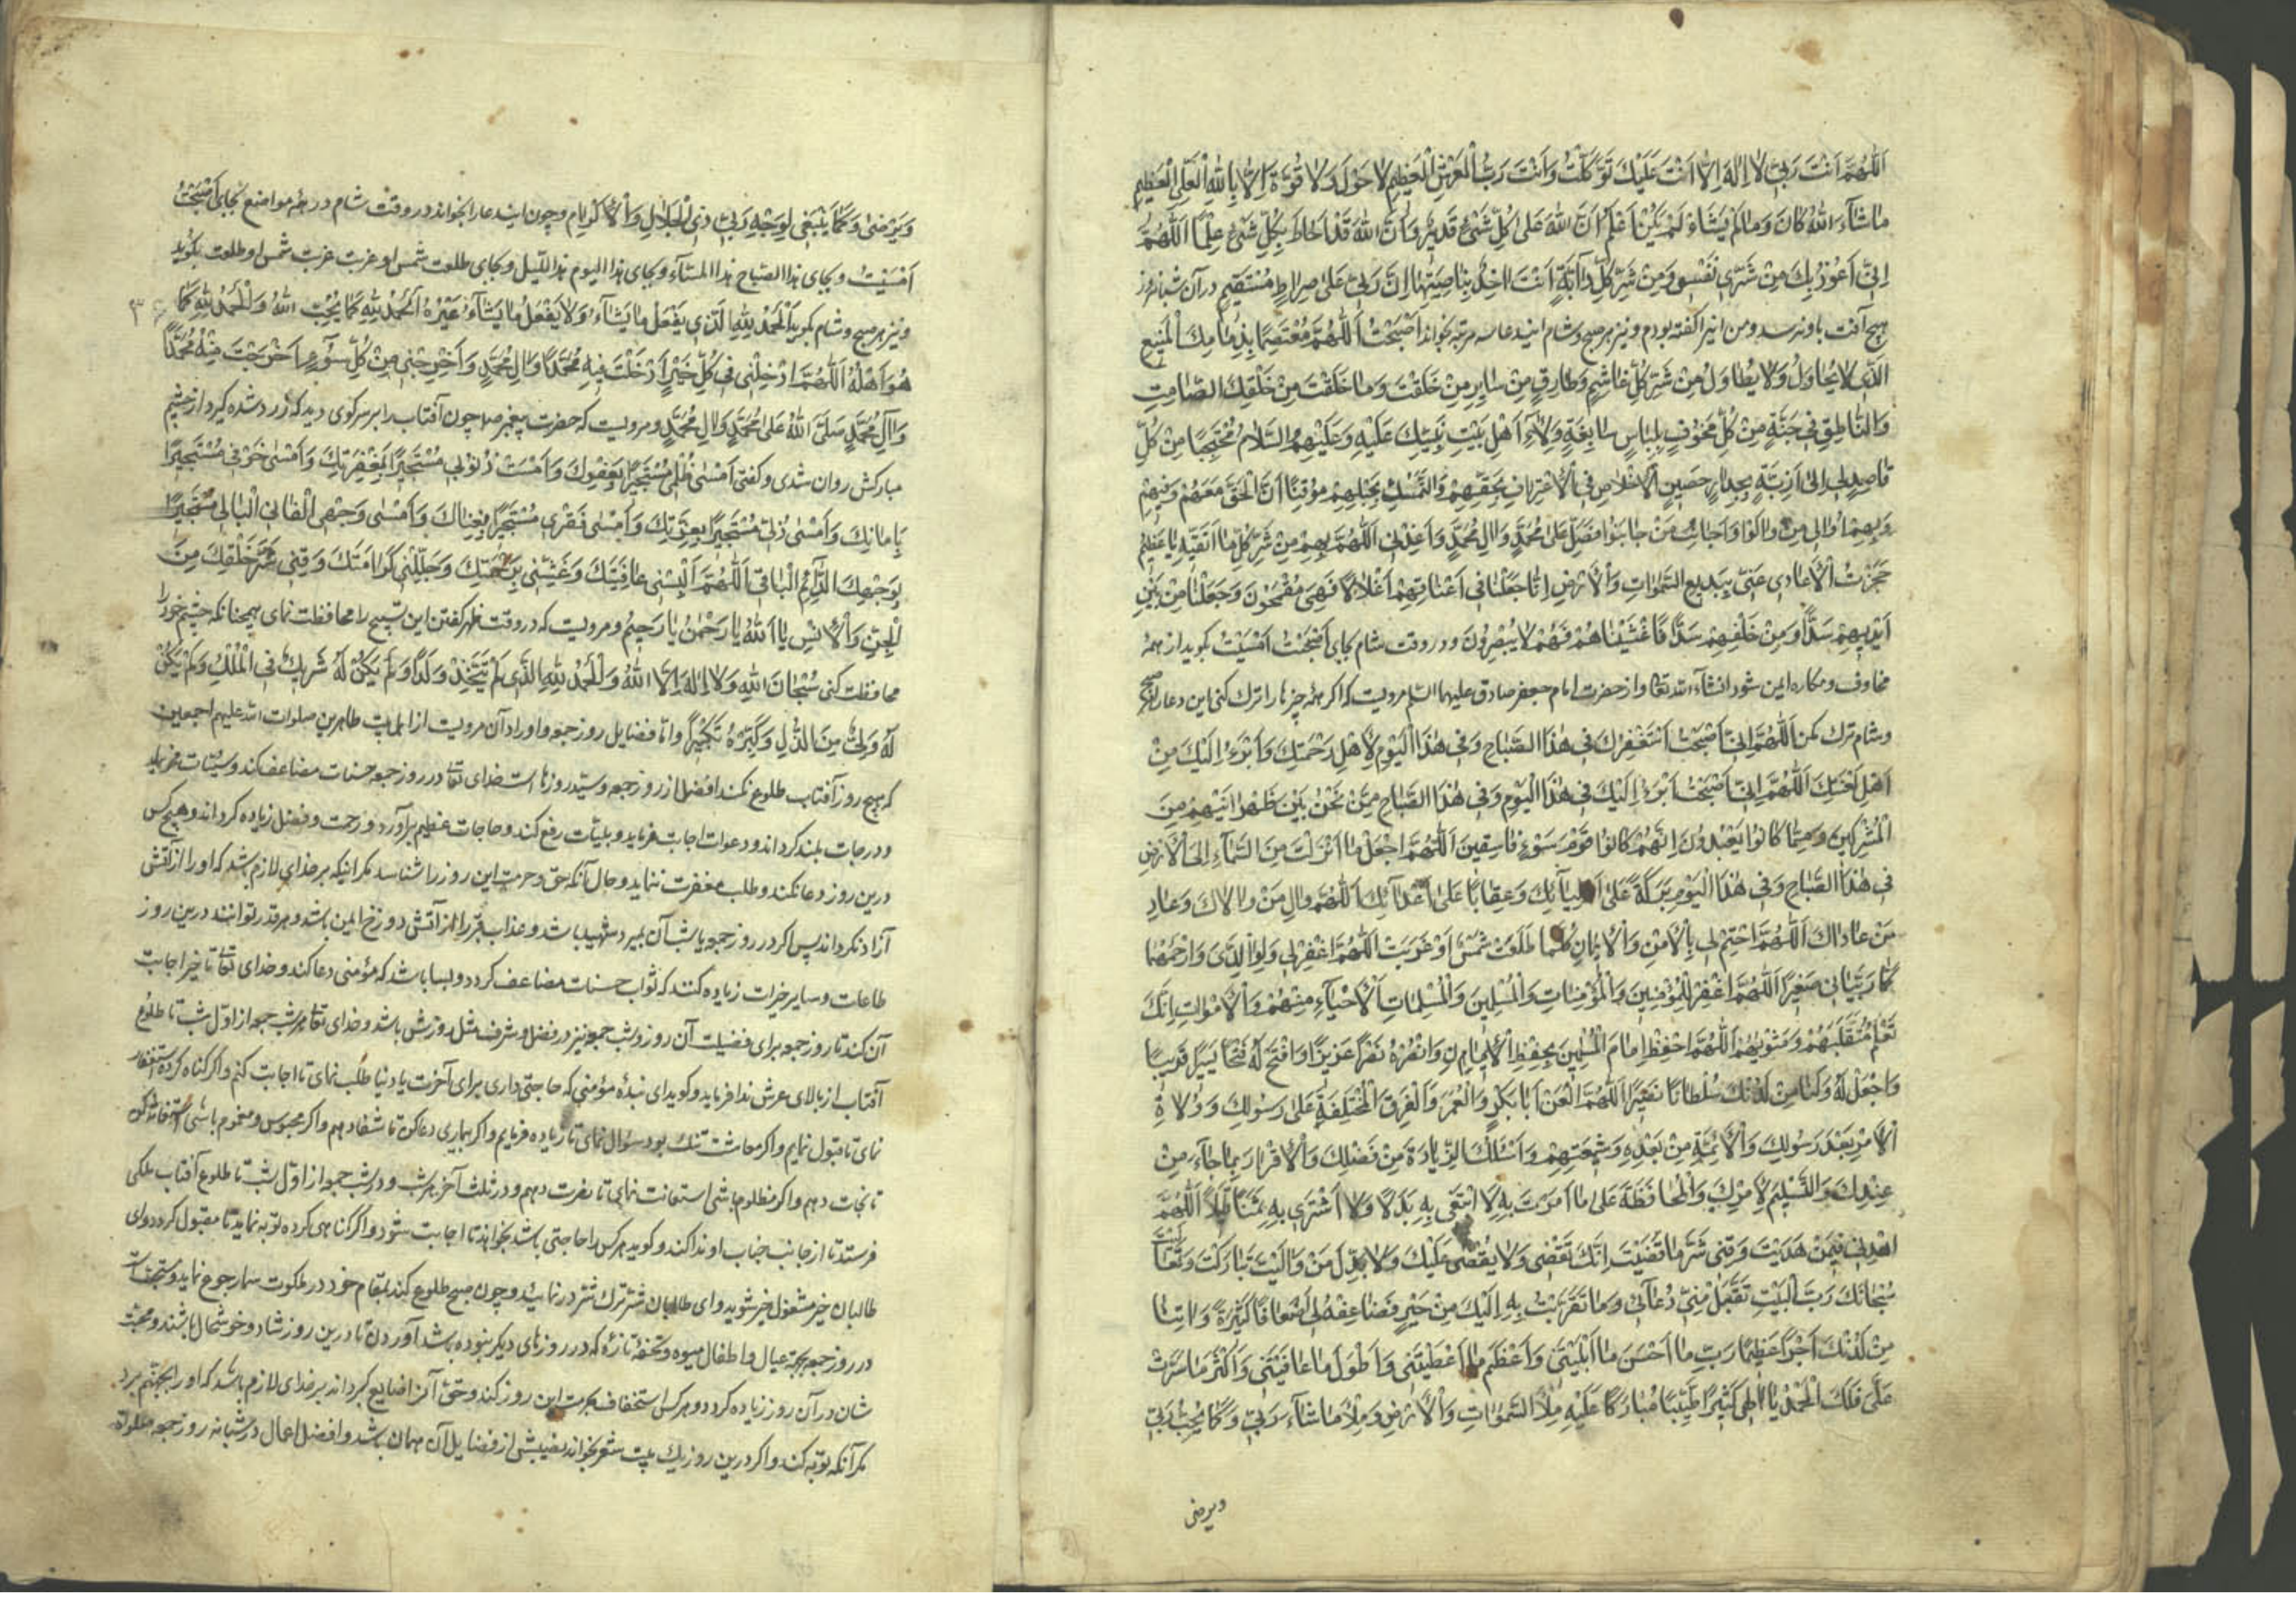 اَللّٰهُمَّ اَنْتَ رَبّي لا اِلٰهَ اِلاّ اَنْتَ عَلَيْكَ تَوَكَّلْتُ وَاَنْتَ رَبُّ الْعَرْشِ الْعَظيمِ لا حَوْلَ وَلا قُوَّةَ اِلاّ بِاللهِ الْعَلِيِّ الْعَظيمِ
ما شآءَ اللهُ كانَ وَما لَمْ يَشَاءْ لَمْ يَكُنْ اَعْلَمُ اَنَّ اللهَ عَلى كُلِّ شَيْءٍ قَديرٌ وَاَنَّ اللهَ قَدْ اَحاطَ بِكُلِّ شَيْءٍ عِلْمًا اَللّٰهُمَّ
اِنّي اَعُوذُ بِكَ مِنْ شَرِّ نَفْسي وَمِنْ شَرِّ كُلِّ دآبَّةٍ اَنْتَ اخِذٌ بِناصِيَتِها اِنَّ رَبّي عَلى صِراطٍ مُسْتَقيمٍ در آن شبانه روز
هیچ آفت باو نرسد ومن اینرا کفته بودم ونیز هر صبح وشام ایندعا سه مرتبه بخواند اَصْبَحْتُ اَللّٰهُمَّ مُعْتَصِمًا بِذِمامِكَ الْمَنيعِ
الَّذي لا يُحاوَلُ وَلا يُطاوَلُ مِنْ شَرِّ كُلِّ غاشِمٍ وَطارِقٍ مِنْ سايِرِ مَنْ خَلَقْتَ وَما خَلَقْتَ مِنْ خَلْقِكَ الصّامِتِ
وَالنّاطِقِ في جُنَّةٍ مِنْ كُلِّ مَخُوفٍ بِلِباسٍ سابِغَةٍ وِلاءِ اَهْلِ بَيْتِ نَبِيِّكَ عَلَيْهِ وَعَلَيْهِمُ السَّلامُ مُحْتَجِبًا مِنْ كُلِّ
قاصِدٍ لي اِلى اَذِيَّةٍ بِجِدارٍ حَصينٍ الْاِخْلاصِ فِي الْاِعْتِرافِ بِحَقِّهِمْ وَالتَّمَسُّكِ بِحَبْلِهِمْ مُوقِنًا اَنَّ الْحَقَّ مَعَهُمْ وَفيهِمْ
وَبِهِمْ اُوالي مَنْ والَوْا وَاُجانِبُ مَنْ جانَبُوا فَصَلِّ عَلى مُحَمَّدٍ وَالِ مُحَمَّدٍ وَاَعِذْنِي اَللّٰهُمَّ بِهِمْ مِنْ شَرِّ كُلِّ ما اَتَّقيهِ يا عَظيمُ
حَجَزْتُ الْاَعادي عَنّي بِبَديعِ السَّمواتِ وَالْاَرْضِ اِنّا جَعَلْنا في اَعْناقِهِمْ اَغْلالاً فَهِيَ مُقْمَحُونَ وَجَعَلْنا مِنْ بَيْنِ
اَيْديهِمْ سَدًّا وَمِنْ خَلْفِهِمْ سَدًّا فَاَغْشَيْناهُمْ فَهُمْ لا يُبْصِرُونَ ودر وقت شام بجای اَصْبَحْتُ اَمْسَيْتُ بکوید از همه
مخاوف ومکاره ایمن شود انشآء الله تعالی واز حضرت امام جعفر صادق علیهما السلم مرویست که اکر همه چیزها را ترک کنی این دعا را هر صبح
وشام ترک مکن اَللّٰهُمَّ اِنّي اَصْبَحْتُ اَسْتَغْفِرُكَ في هٰذَا الصَّباحِ وَفي هٰذَا الْيَوْمِ لِاَهْلِ رَحْمَتِكَ وَاَبْرَءُ اِلَيْكَ مِنْ
اَهْلِ لَعْنَتِكَ اَللّٰهُمَّ اِنّي اَصْبَحْتُ اَبْرَءُ اِلَيْكَ في هٰذَا الْيَوْمِ وَفي هٰذَا الصَّباحِ مِمَّنْ نَحْنُ بَيْنَ ظَهْرانَيْهِمْ مِنَ
الْمُشْرِكينَ وَمِمّا كانُوا يَعْبُدُونَ اِنَّهُمْ كانُوا قَوْمَ سَوْءٍ فاسِقينَ اَللّٰهُمَّ اجْعَلْ ما اَنْزَلْتَ مِنَ السَّمآءِ اِلَى الْاَرْضِ
في هٰذَا الصَّباحِ وَفي هٰذَا الْيَوْمِ بَرَكَةً عَلى اَوْلِيآئِكَ وَعِقابًا عَلى اَعْدآئِكَ اَللّٰهُمَّ والِ مَنْ والاكَ وَعادِ
مَنْ عاداكَ اَللّٰهُمَّ اخْتِمْ لي بِالْاَمْنِ وَالْايمانِ كُلَّما طَلَعَتْ شَمْسٌ اَوْ غَرَبَتْ اَللّٰهُمَّ اغْفِرْ لي وَلِوالِدَيَّ وَارْحَمْهُما
كَما رَبَّياني صَغيرًا اَللّٰهُمَّ اغْفِرْ لِلْمُؤْمِنينَ وَالْمُؤْمِناتِ وَالْمُسْلِمينَ وَالْمُسْلِماتِ الْاَحْيآءِ مِنْهُمْ وَالْاَمْواتِ اِنَّكَ
تَعْلَمُ مُتَقَلَّبَهُمْ وَمَثْويهُمْ اَللّٰهُمَّ احْفَظْ اِمامَ الْمُسْلِمينَ بِحِفْظِ الْايمانِ وَانْصُرْهُ نَصْرًا عَزيزًا وَافْتَحْ لَهُ فَتْحًا يَسيرًا قَريبًا
وَاجْعَلْ لَهُ وَلَنا مِنْ لَدُنْكَ سُلْطانًا نَصيرًا اَللّٰهُمَّ الْعَنْ اَبا بَكْرٍ وَالْعُمَرَ وَالْفِرَقَ الْمُخْتَلِفَةَ عَلى رَسُولِكَ وَوُلاةِ
الْاَمْرِ بَعْدَ رَسُولِكَ وَالْاَئِمَّةِ مِنْ بَعْدِهِ وَشيعَتِهِمْ وَاَسْئَلُكَ الزِّيادَةَ مِنْ فَضْلِكَ وَالْاِقْرارَ بِما جآءَ مِنْ
عِنْدِكَ وَالتَّسْليمَ لِاَمْرِكَ وَالْمُحافَظَةَ عَلى ما اَمَرْتَ بِهِ لا اَبْتَغي بِهِ بَدَلاً وَلا اَشْتَري بِهِ ثَمَنًا قَليلاً اَللّٰهُمَّ
اهْدِني فيمَنْ هَدَيْتَ وَقِني شَرَّ ما قَضَيْتَ اِنَّكَ تَقْضي وَلا يُقْضى عَلَيْكَ وَلا يَذِلُّ مَنْ والَيْتَ تَبارَكْتَ وَتَعالَيْتَ
سُبْحانَكَ رَبَّ الْبَيْتِ تَقَبَّلْ مِنّي دُعآئي وَما تَقَرَّبْتُ بِهِ اِلَيْكَ مِنْ خَيْرٍ فَضاعِفْهُ لي اَضْعافًا كَثيرَةً وَاتِنا
مِنْ لَدُنْكَ اَجْرًا عَظيمًا رَبِّ ما اَحْسَنَ ما اَبْلَيْتَني وَاَعْظَمَ ما اَعْطَيْتَني وَاَطْوَلَ ما عافَيْتَني وَاَكْثَرَ ما سَتَرْتَ
عَلَيَّ فَلَكَ الْحَمْدُ يا اِلٰهي كَثيرًا طَيِّبًا مُبارَكًا عَلَيْهِ مِلْأَ السَّمواتِ وَالْاَرْضِ وَمِلْأَ ما شآءَ رَبّي وَكَما يُحِبُّ رَبّي
ویرضی
وَيَرْضى وَكَما يَنْبَغي لِوَجْهِ رَبّي ذِي الْجَلالِ وَالْاِكْرامِ وچون ایندعا را بخواند در وقت شام در همه مواضع بجای اَصْبَحْتُ
اَمْسَيْتُ وبجای هذا الصباح هذا المسآء وبجای هذا الیوم هذا اللیل وبجای طلعت شمس او غربت غربت شمس او طلعت بکوید
ونیز هر صبح وشام بکوید اَلْحَمْدُ لِلّٰهِ الَّذي يَفْعَلُ ما يَشآءُ وَلا يَفْعَلُ ما يَشآءُ غَيْرُهُ اَلْحَمْدُ لِلّٰهِ كَما يُحِبُّ اللهُ وَالْحَمْدُ لِلّٰهِ كَما
هُوَ اَهْلُهُ اَللّٰهُمَّ اَدْخِلْني في كُلِّ خَيْرٍ اَدْخَلْتَ فيهِ مُحَمَّدًا وَالَ مُحَمَّدٍ وَاَخْرِجْني مِنْ كُلِّ سُوءٍ اَخْرَجْتَ مِنْهُ مُحَمَّدًا
وَالَ مُحَمَّدٍ صَلَّى اللهُ عَلى مُحَمَّدٍ وَالِ مُحَمَّدٍ ومرویست که حضرت پیغمبر ص چون آفتاب را بر سر کوی دید که زرد شده کیرد از چشم
مبارکش روان شدی وکفتی اَمْسى ظُلْمي مُسْتَجيرًا بِعَفْوِكَ وَاَمْسَتْ ذُنُوبي مُسْتَجيرًا بِمَغْفِرَتِكَ وَاَمْسى خَوْفي مُسْتَجيرًا
بِاَمانِكَ وَاَمْسى ذُلّي مُسْتَجيرًا بِعِزَّتِكَ وَاَمْسى فَقْري مُسْتَجيرًا بِغِناكَ وَاَمْسى وَجْهِيَ الْفانِي الْبالي مُسْتَجيرًا
بِوَجْهِكَ الدّآئِمِ الْباقي اَللّٰهُمَّ اَلْبِسْني عافِيَتَكَ وَغَشِّني بِرَحْمَتِكَ وَجَلِّلْني كَرامَتَكَ وَقِني شَرَّ خَلْقِكَ مِنَ
الْجِنِّ وَالْاِنْسِ يا اَللهُ يا رَحْمٰنُ يا رَحيمُ ومرویست که در وقت ظهر کفتن این تسبیح را محافظت نمای همچنانکه چشم خود را
محافظت کنی سُبْحانَ اللهِ وَلا اِلٰهَ اِلاَّ اللهُ وَالْحَمْدُ لِلّٰهِ الَّذي لَمْ يَتَّخِذْ وَلَدًا وَلَمْ يَكُنْ لَهُ شَريكٌ فِي الْمُلْكِ وَلَمْ يَكُنْ
لَهُ وَلِيٌّ مِنَ الذُّلِّ وَكَبِّرْهُ تَكْبيرًا واما فضایل روز جمعه واوراد آن مرویست از اهل بیت طاهرین صلوات الله علیهم اجمعین
که هیچ روز آفتاب طلوع نمکند افضل از روز جمعه وسید روزها است خدای تعالی در روز جمعه حسنات مضاعف کند وسیئات محو نماید
ودرجات بلند کرداند ودعوات اجابت فرماید وبلیات رفع کند وحاجات عظیم برآورد ورحمت وفضل زیاده کرداند وهیچ کس
درین روز دعا نکند وطلب مغفرت ننماید وحال آنکه حق وحرمت این روز را شناسد مکر اینکه بر خدای لازم باشد که او را از آتش
آزاد کرداند پس اکر در روز جمعه یا شب آن بمیرد شهید باشد وعذاب قبر را از آتش دوزخ ایمن باشد وهر قدر توانند درین روز
طاعات وسایر خیرات زیاده کنند که ثواب حسنات مضاعف کردد وبسا باشد که مؤمنی دعا کند وخدای تعالی تاخیر اجابت
آن کند تا روز جمعه برای فضیلت آن روز وشب جمعه نیز در فضل وشرف مثل روزش باشد وخدای تعالی هر شب جمعه از اول شب تا طلوع
آفتاب از بالای عرش ندا فرماید وکوید ای بنده مؤمنی که حاجتی داری برای آخرت یا دنیا طلب نمای تا اجابت کنم واکر کناه کرده استغفار
نمای تا قبول نمایم واکر معاشت تنک بود سؤال نمای تا زیاده فرمایم واکر بیماری دعا کن تا شفا دهم واکر محبوس ومغموم باشی
تا نجات دهم واکر مظلوم باشی استعانت نمای تا نصرت دهم ودر ثلث آخر هر شب ودر شب جمعه از اول شب تا طلوع آفتاب ملکی
فرستد تا از جانب جناب او ندا کند وکوید هر کس را حاجتی باشد بخواند تا اجابت شود واگر کناهی کرده توبه نماید تا مقبول کردد وای
طالبان خیر مشغول خیر شوید وای طالبان شر ترک شر نمائید وچون صبح طلوع کند بمقام خود در ملکوت سما رجوع نماید ومستحب است
در روز جمعه بجهة عیال واطفال میوه وتحفه تازه که در روزهای دیکر نبوده باشد آوردن تا درین روز شاد وخوشحال باشند ومحبت
شان در آن روز زیاده کردد وهر کس استخفاف بحرمت این روز کند وحق آنرا ضایع کرداند بر خدای لازم باشد که او را بجهنم برد
مکر آنکه توبه کند واکر درین روز یک بیت شعر بخواند نصیبش از فضایل آن همان باشد وافضل اعمال در شبانه روز جمعه صلواة